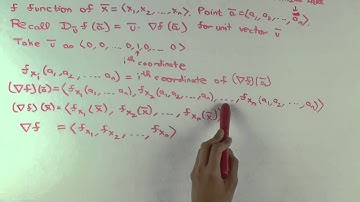 f function of x̄ = ⟨x₁, x₂, ..., xₙ⟩. Point ā = ⟨a₁, a₂, ..., aₙ⟩
Recall D_ū f(ā) = ū · ∇f(ā) for unit vector ū
Take ū as ⟨0, 0, ... 0, 1, 0, ... 0⟩
iᵗʰ coordinate
f_xᵢ(a₁, a₂, ..., aₙ) = iᵗʰ coordinate of (∇f)(ā)
(∇f)(ā) = ⟨f_x₁(a₁, a₂, ..., aₙ), f_x₂(a₁, a₂, ..., aₙ), ..., f_xₙ(a₁, a₂, ..., aₙ)⟩
(∇f)(x̄) = ⟨f_x₁(x̄), f_x₂(x̄), ..., f_xₙ(x̄)⟩
∇f = ⟨f_x₁, f_x₂, ..., f_xₙ⟩